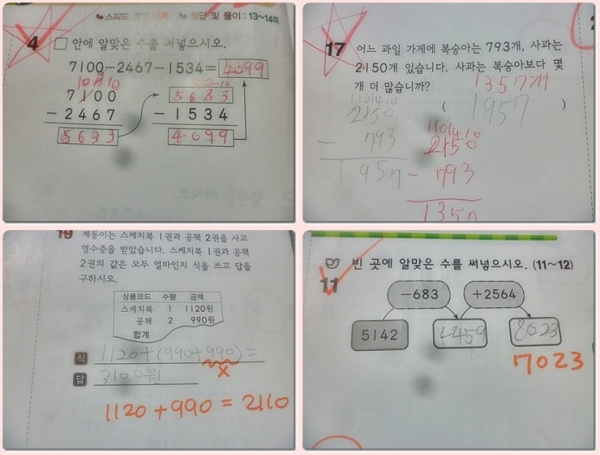 정답 및 풀이 : 13~14쪽
4 □ 안에 알맞은 수를 써넣으시오.
7100-2467-1534= 4099
7100
- 2467
5633
5633
- 1534
4099
17 어느 과일 가게에 복숭아는 793개, 사과는
2150개 있습니다. 사과는 복숭아보다 몇
개 더 많습니까?
1357개
( 1957 )
2150
- 793
1957
2150
- 793
1357
19 계동이는 스케치북 1권과 공책 2권을 사고
영수증을 받았습니다. 스케치북 1권과 공책
2권의 값은 모두 얼마인지 식을 쓰고 답을
구하시오.
상품코드 수량 금액
스케치북 1 1120원
공책 2 990원
합계
식 1120+(990+990)=
답 3100원
1120+990=2110
빈 곳에 알맞은 수를 써넣으시오. (11~12)
11
-683 +2564
5142 4459 8023
7023